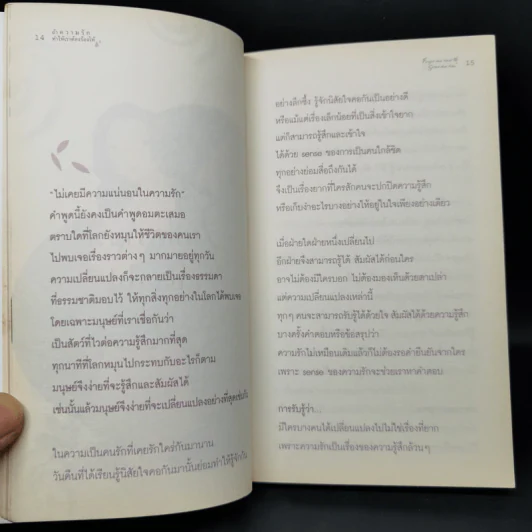 14
ถ้าความรัก
ทำให้เราต้องร้องไห้
"ไม่เคยมีความแน่นอนในความรัก"
คำพูดนี้ยังคงเป็นคำพูดอมตะเสมอ
ตราบใดที่โลกยังหมุนให้ชีวิตของคนเรา
ไปพบเจอเรื่องราวต่าง ๆ มากมายอยู่ทุกวัน
ความเปลี่ยนแปลงก็จะกลายเป็นเรื่องธรรมดา
ที่ธรรมชาติมอบไว้ ให้ทุกสิ่งทุกอย่างในโลกได้พบเจอ
โดยเฉพาะมนุษย์ที่เราเชื่อกันว่า
เป็นสัตว์ที่ไวต่อความรู้สึกมากที่สุด
ทุกนาทีที่โลกหมุนไปกระทบกับอะไรก็ตาม
มนุษย์จึงง่ายที่จะรู้สึกและสัมผัสได้
เช่นนั้นแล้วมนุษย์จึงง่ายที่จะเปลี่ยนแปลงอย่างที่สุดเช่นกัน
ในความเป็นคนรักที่เคยรักใคร่กันมานาน
วันคืนที่ได้เรียนรู้นิสัยใจคอกันมานั้นย่อมทำให้รู้จักใน
15
อย่างลึกซึ้ง รู้จักนิสัยใจคอกันเป็นอย่างดี
หรือแม้แต่เรื่องเล็กน้อยที่เป็นสิ่งเข้าใจยาก
แต่ก็สามารถรู้สึกและเข้าใจ
ได้ด้วย sense ของการเป็นคนใกล้ชิด
ทุกอย่างย่อมสื่อถึงกันได้
จึงเป็นเรื่องยากที่ใครสักคนจะปกปิดความรู้สึก
หรือเก็บงำอะไรบางอย่างให้อยู่ในใจเพียงอย่างเดียว
เมื่อฝ่ายใดฝ่ายหนึ่งเปลี่ยนไป
อีกฝ่ายจึงสามารถรู้ได้ สัมผัสได้ก่อนใคร
อาจไม่ต้องมีใครบอก ไม่ต้องมองเห็นด้วยตาเปล่า
แต่ความเปลี่ยนแปลงเหล่านี้
ทุก ๆ คนสามารถรับรู้ได้ด้วยใจ สัมผัสได้ด้วยความรู้สึก
บางครั้งคำตอบหรือข้อสรุปว่า
ความรักไม่เหมือนเดิมแล้วก็ไม่ต้องรอคำยืนยันจากใคร
เพราะ sense ของความรักจะช่วยเราหาคำตอบ
การรับรู้ว่า...
มีใครบางคนได้เปลี่ยนแปลงไปไม่ใช่เรื่องที่ยาก
เพราะความรักเป็นเรื่องของความรู้สึกล้วนๆ